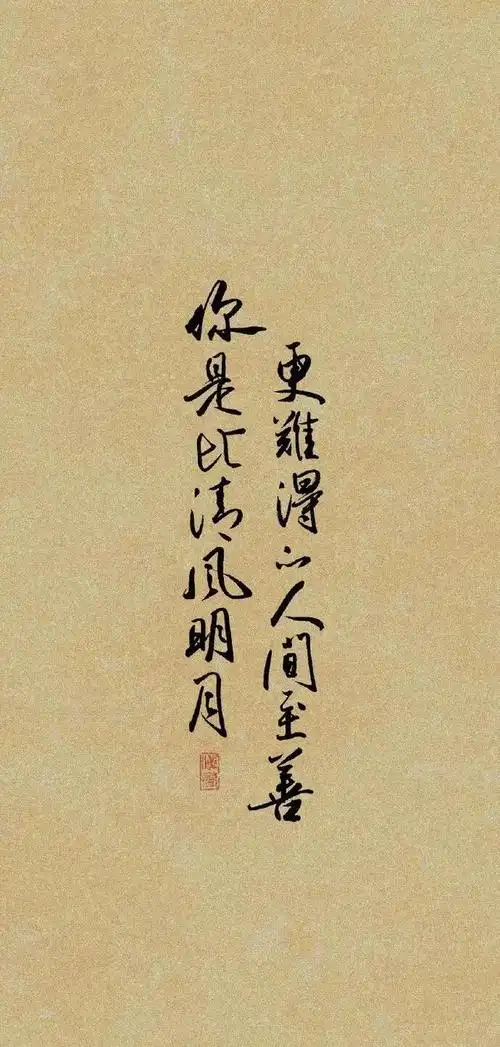 你是比清风明月
更難得的人间至善